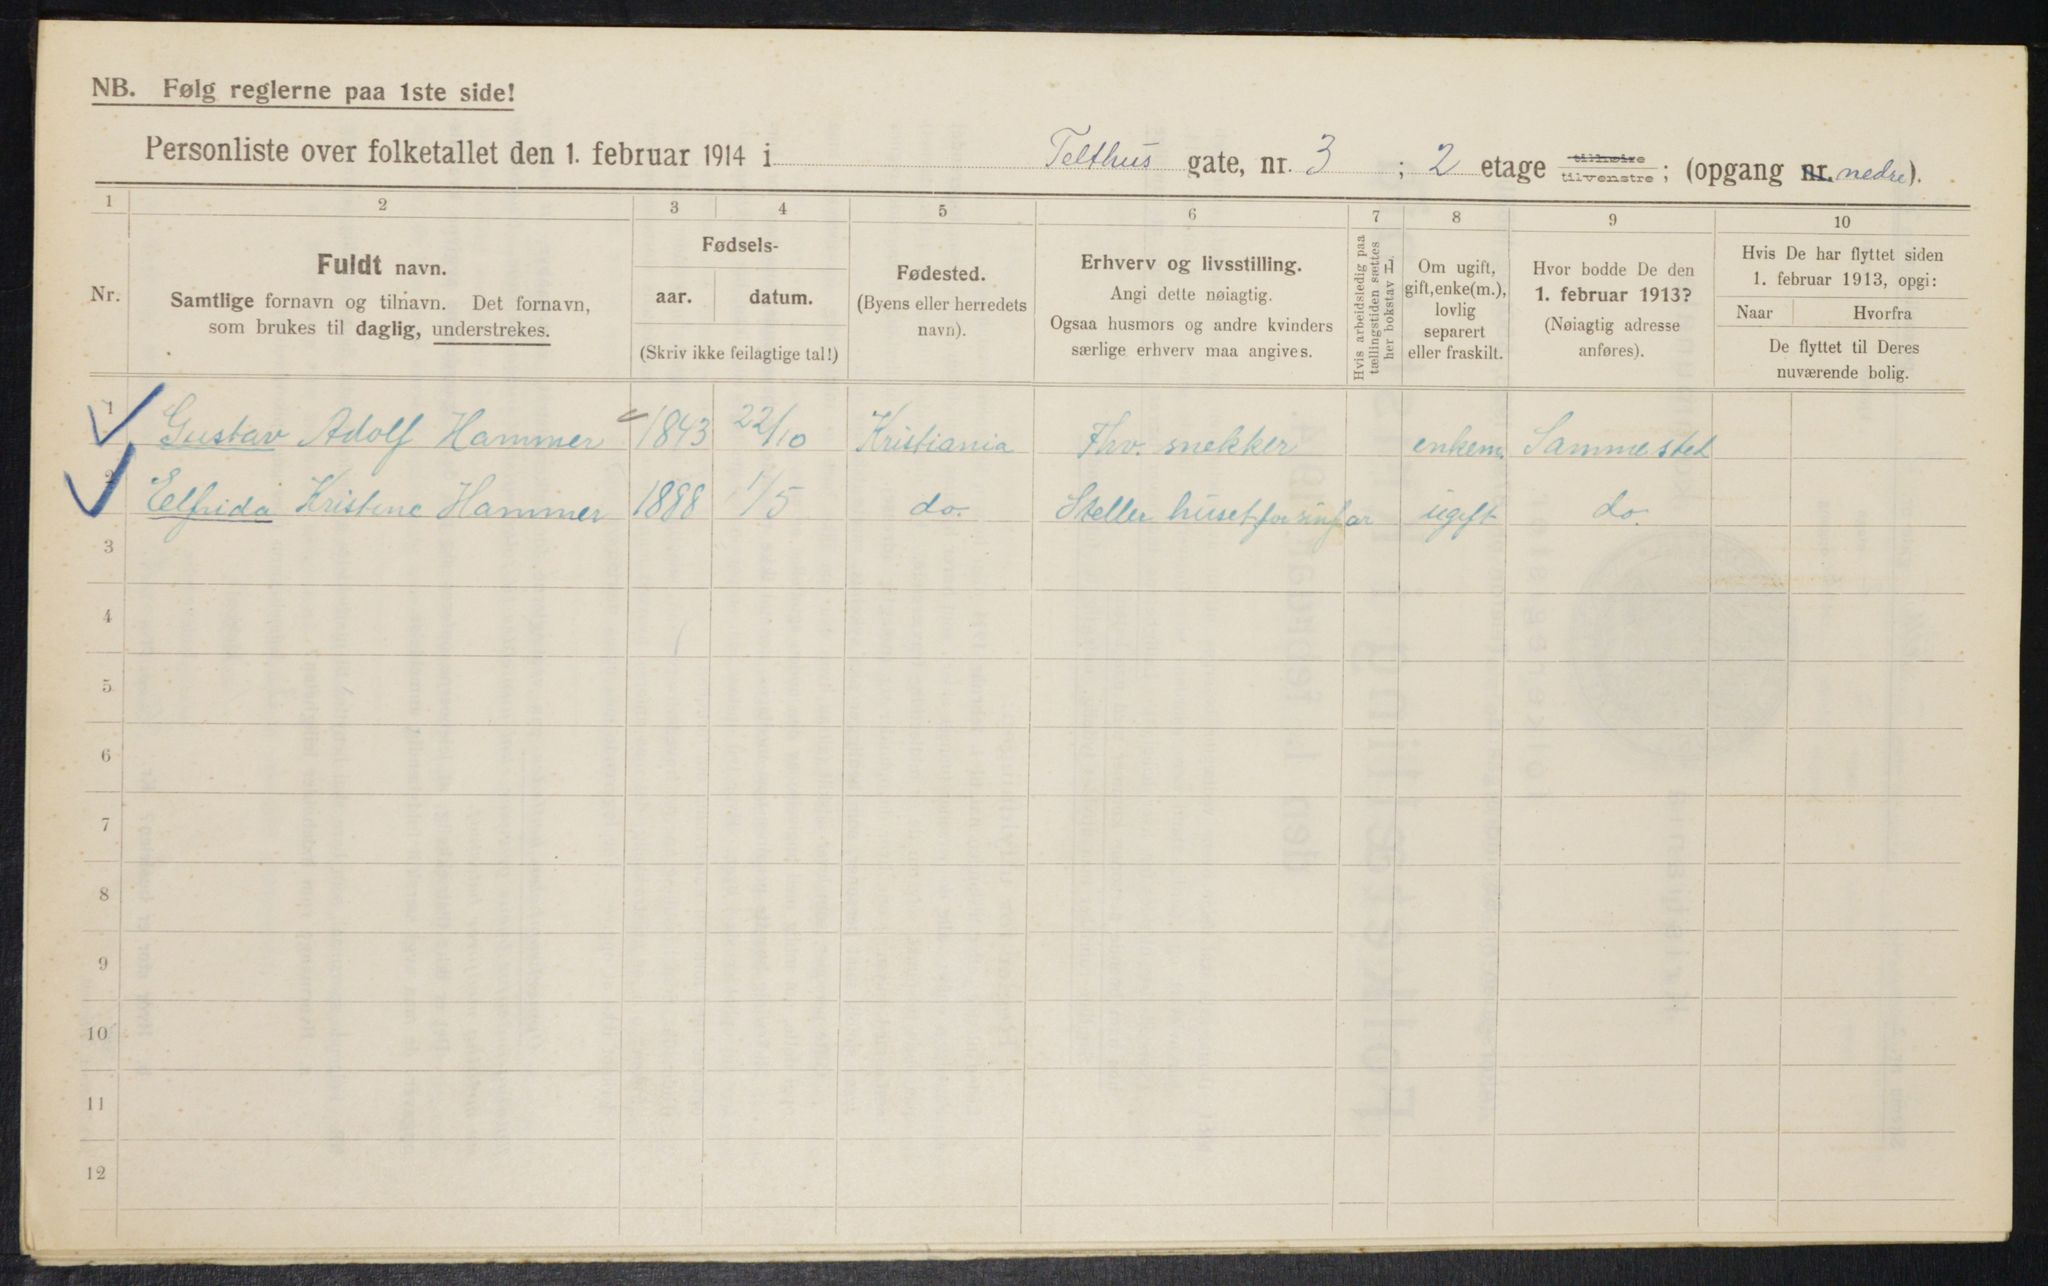 NB. Følg reglerne paa 1ste side!
Personliste over folketallet den 1. februar 1914 i Telthus gate, nr. 3 ; 2 etage tilhøire tilvenstre; (opgang nr. nedre).
1 2 3 4 5 6 7 8 9 10
Nr.
Fuldt navn.
Samtlige fornavn og tilnavn. Det fornavn,
som brukes til daglig, understrekes.
Fødsels-
aar. datum.
(Skriv ikke feilagtige tal!)
Fødested.
(Byens eller herredets
navn).
Erhverv og livsstilling.
Angi dette nøiagtig.
Ogsaa husmors og andre kvinders
særlige erhverv maa angives.
Hvis arbeidsledig paa
tællingstiden sættes
her bokstav L.
Om ugift,
gift, enke(m.),
lovlig
separert
eller fraskilt.
Hvor bodde De den
1. februar 1913?
(Nøiagtig adresse
anføres).
Hvis De har flyttet siden
1. februar 1913, opgi:
Naar Hvorfra
De flyttet til Deres
nuværende bolig.
1 Gustav Adolf Hammer 1843 22/10 Kristiania Fhv. snekker enkem. Sammested
2 Elfrida Kristine Hammer 1888 1/5 do. Steller huset for sin far ugift do.
3
4
5
6
7
8
9
10
11
12